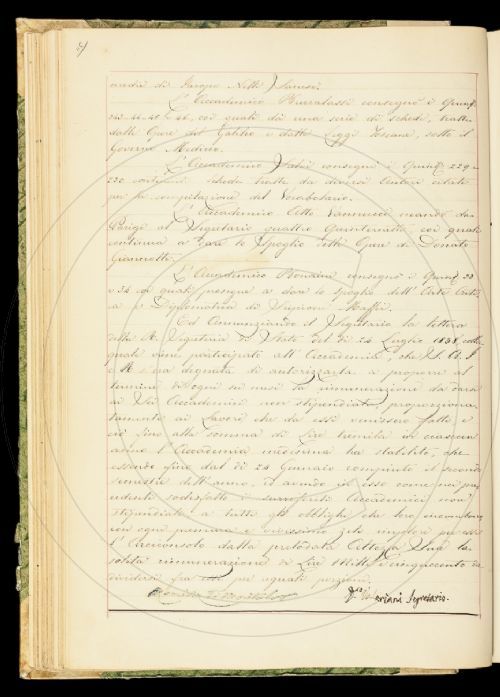 L'Accademico consegnò i Quin.
243-44-45-46, coi quali dà una serie di schede, tratte
dalle Opere del Galileo e dalle Leggi Toscane, sotto il
Governo Mediceo.
L'Accademico consegnò i Quin. 229-
230 contenenti schede tratte da diversi Autori citati
per la compilazione del Vocabolario.
L'Accademico Atto Vannucci mandò da
Parigi al Segretario quattro Quinternetti coi quali
continua a dare lo Spoglio delle Opere di Donato
Giannotti.
L'Accademico consegnò i Quin. 33
e 34 coi quali prosegue a dare lo spoglio dell'Arte
Diplomatica di Scipione Maffei.
Ed Annunziando il Segretario la lettera
della R. Segreteria di Stato del dì 24 Luglio 1838, colla
quale viene participato all'Accademia, che S. A. I.
e R. s'era degnata di autorizzarla a proporre al
termine di ogni sei mesi la rimunerazione da darsi
ai Sei Accademici non stipendiati, proporziona-
tamente ai lavori che da essi venissero fatti e
ciò fino alla somma di Lire tremila in ciascun
anno l'Accademia medesima ha stabilito, che
essendo fino dal dì 24 Gennaio compiuto il secondo
semestre dell'anno, ed avendo in esso come nei pre-
cedenti sodisfatto i surriferiti Accademici non
stipendiati a tutti gli obblighi che loro incombono,
con ogni premura e zelo implora per essi
dalla prelodata Altezza Sua la
solita rimunerazione di Lire Mille e cinquecento da
dividersi fra essi per eguali porzioni.
Segretario.